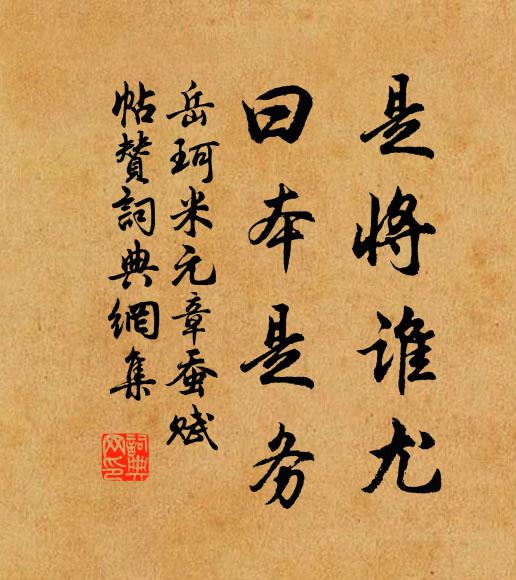 是将谁尤
曰本是务
岳珂米元章蚕赋
帖赞词典網集
詞典网印